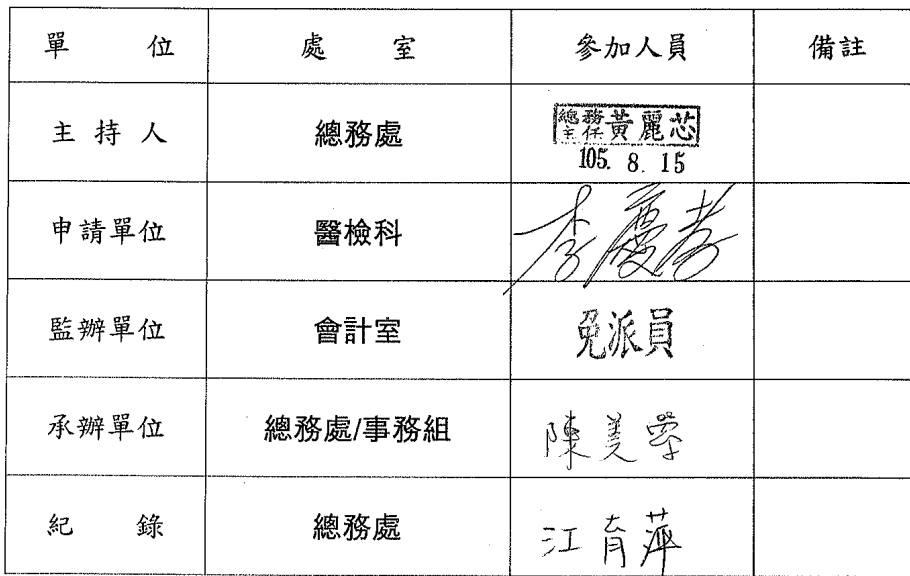 單 位 處 室 參加人員 備註
主 持 人 總務處 總務主任 黃麗芯
105. 8. 15
申請單位 醫檢科 李慶孝
監辦單位 會計室 免派員
承辦單位 總務處/事務組 陳美雯
紀 錄 總務處 江育萍